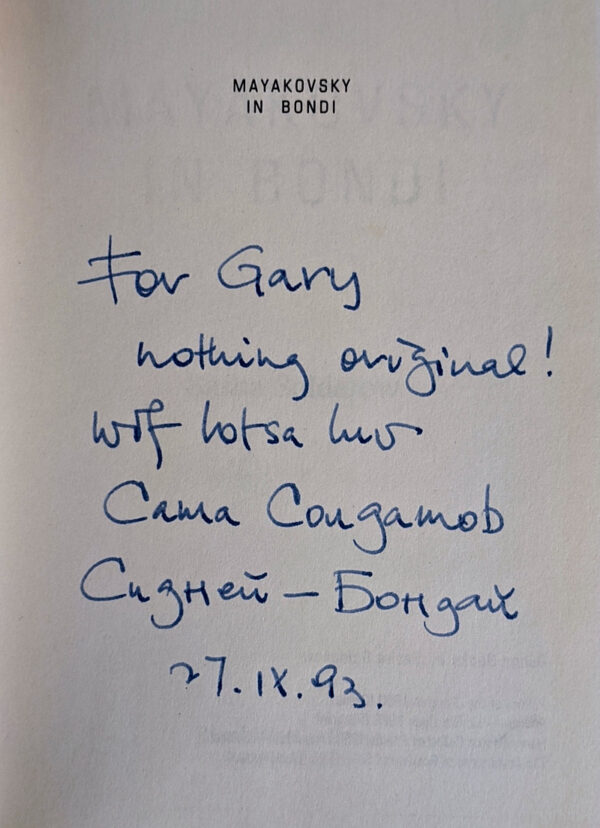 MAYAKOVSKY
IN BONDI
For Gary
nothing original!
wif lotsa luv
Саша Солдатов
Сидней — Бондай
27.IX.93.